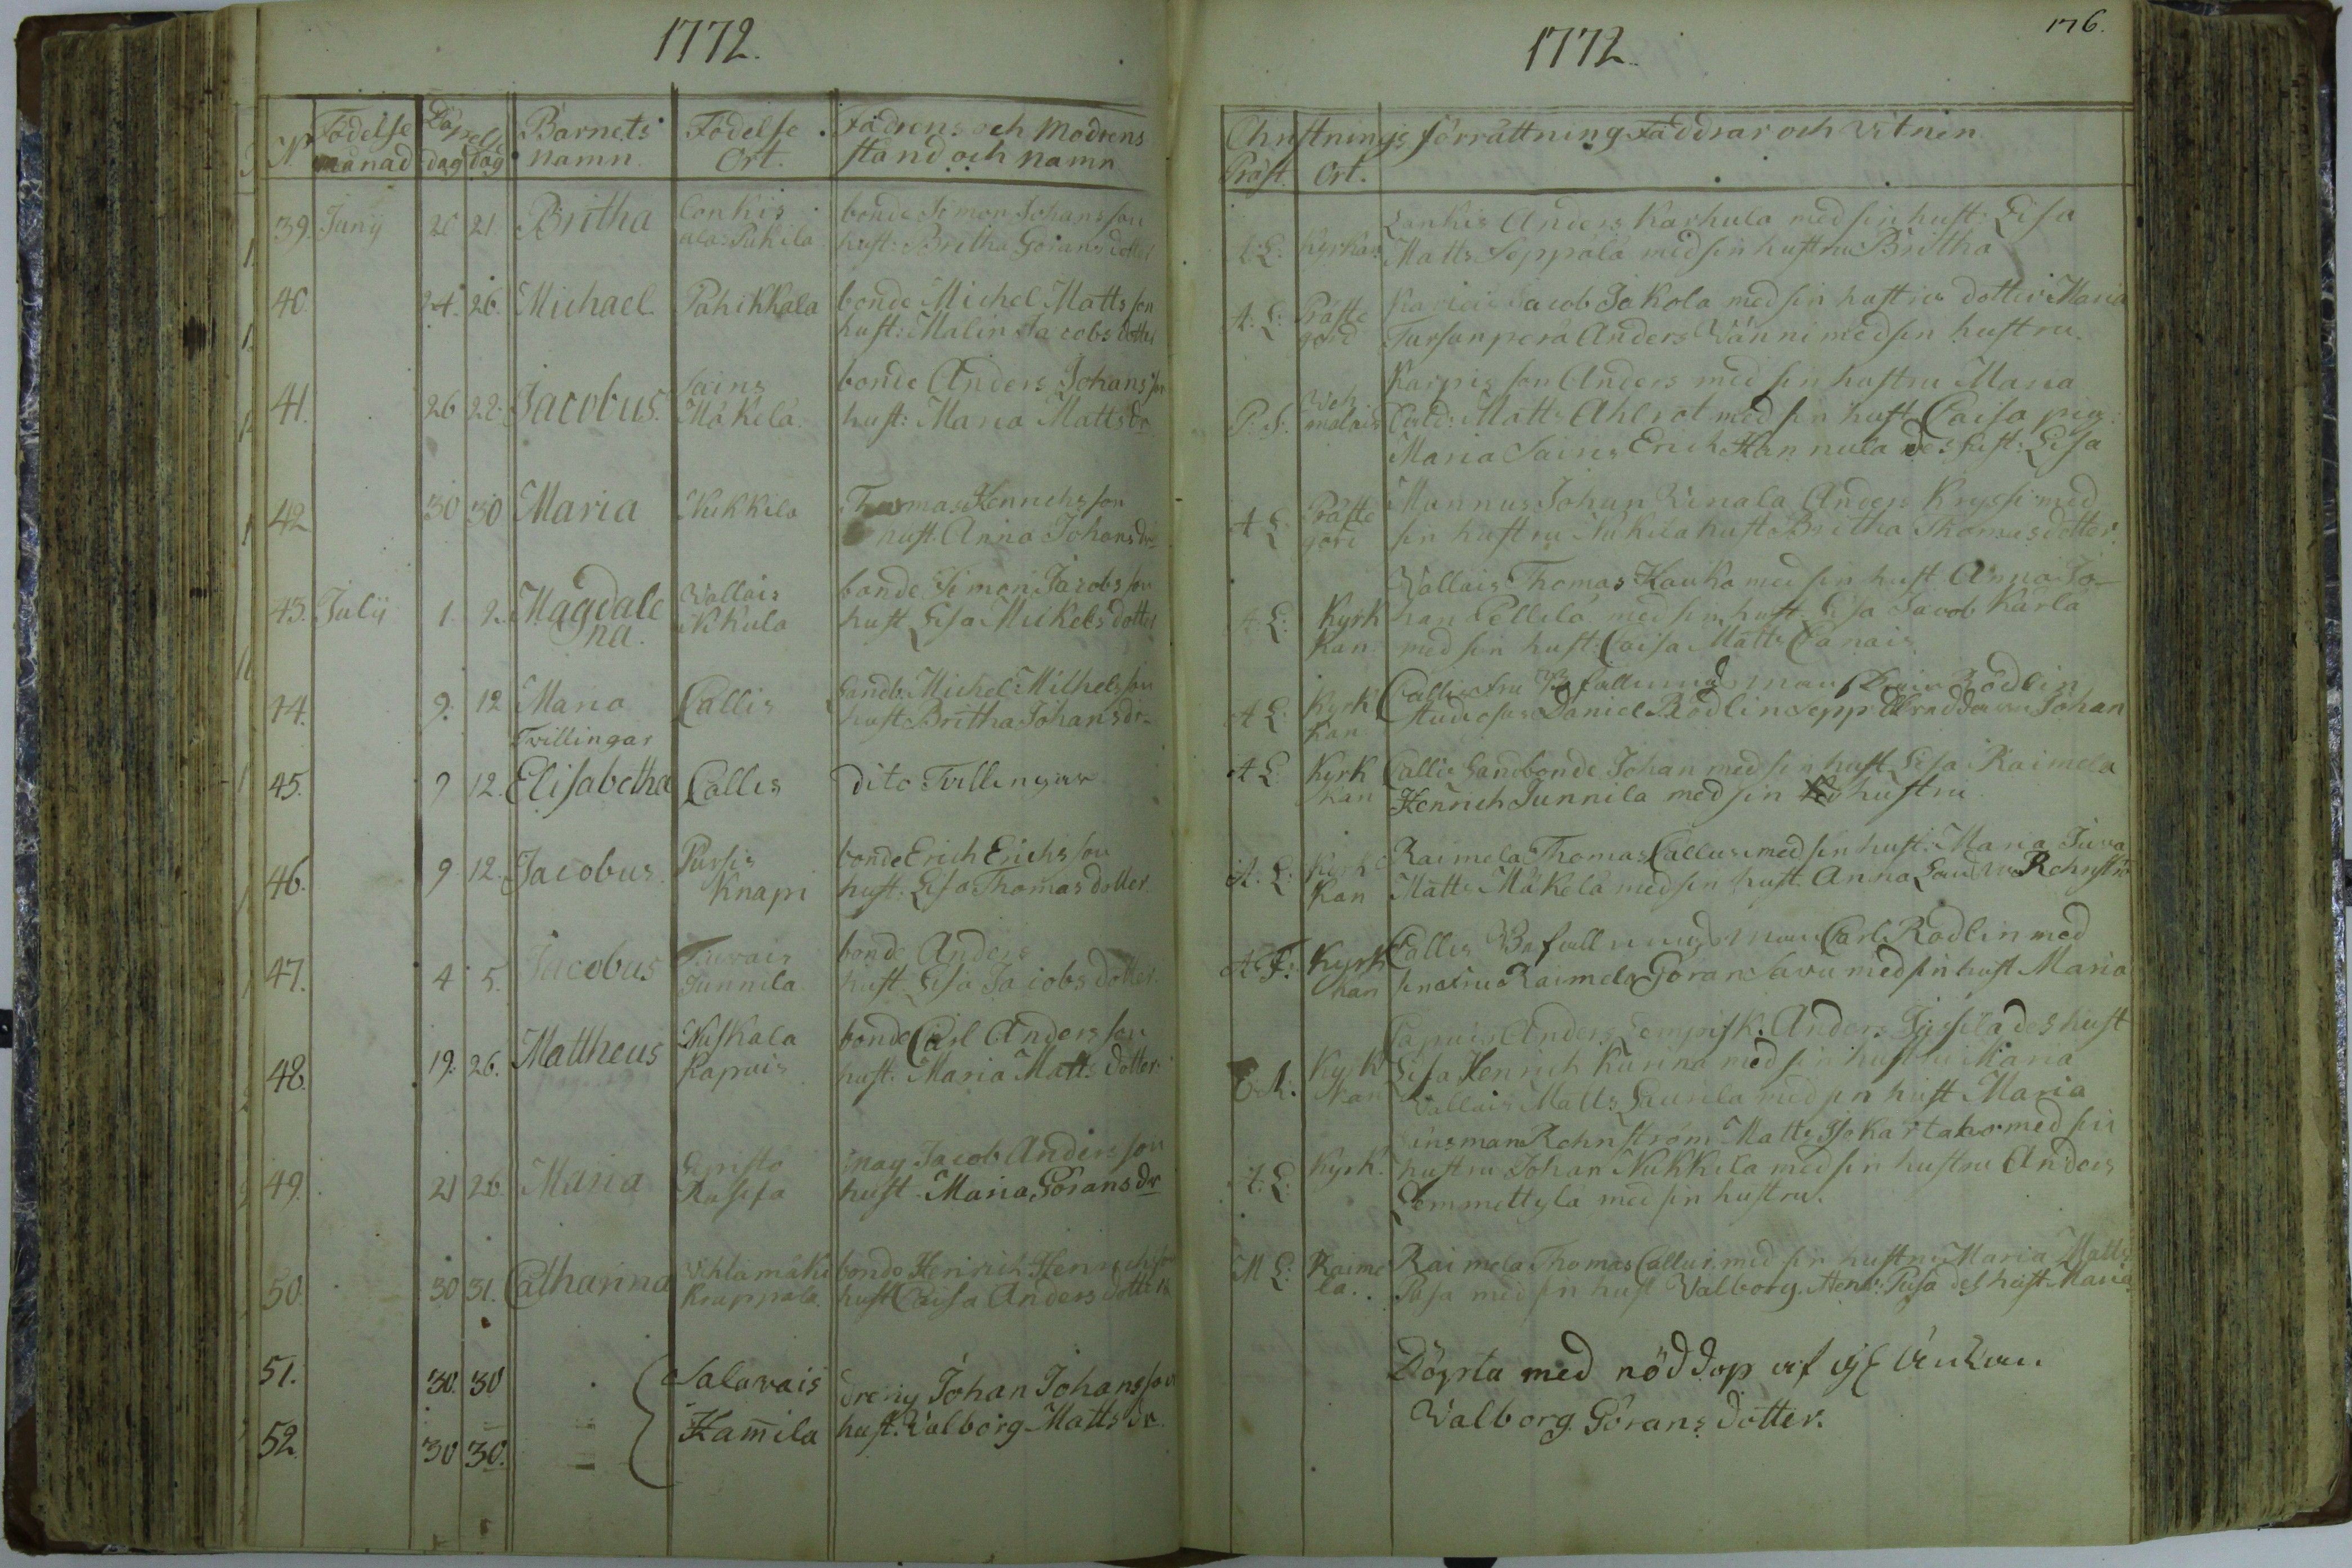 1772.
N. Födelse månad dag Döpelse dag Barnets namn. Födelse Ort. Fadrens och Modrens stånd och namn
39. Junij 20 21. Britha Conkis bonde Simon Johansson
ala: Pukila hust: Britha Görans dotter
40. 24. 26. Michael. Pahikkala bonde Michel Mattsson
hust: Malin Jacobs dotter
41. 26 28. Jacobus. Sains bonde Anders Johansson
Mäkelä. hust: Maria Matts dr
42 30 30 Maria Nukkila Thomas Henrichsson
hust. Anna Johans dr
43. Julij 1. 2. Magdale Wallais bonde Simon Jacobsson
na. Nikula hust Lisa Mickels dotter
44. 9. 12 Maria Callis Landb: Michel Michelsson
Tvillingar hust Britha Johans dr
45. 9 12. Elisabetha Callis dito Tvillingar
46. 9 12. Jacobus. Pursis bonde Erich Erichsson
Knapi hust: Lisa Thomas dotter
47. 4 5. Jacobus Juvais bonde Anders
Junnila. hust Lisa Jacobs dotter
48. 19. 26. Mattheus Nuskala bonde Carl Andersson
Kapuis hust. Maria Matts dotter
49. 21 26 Maria Jacob Andersson
hust. Maria Görans dr
50. 30 31. Catharina Vehlamäki bonde Henrich Henrichsson
Knappala. hust Caisa Anders dotter
51. 30. 30 Salavais dreng Johan Johansson
52. 30 30. Hamila hust. Valborg Matts dr
176.
1772.
Christnings förrättning Faddrar och Vitnen
Präst. Ort.
Lankis Anders Karhula med sin hust: Lisa
A. L. Kyrkan Matts Seppälä med sin hustru Britha
A: L: Präste Jacob Jakola med sin hustru dotter Maria
gård Tursunperä Anders Vänni med sin hustru.
Karpis son Anders med sin hustru Maria
P. S. Veh malais Matts Ahlrot med sin hust Caisa pig:
Maria Sains Erich Hannula des hust: Lisa
A L Präste Mannus Johan Vinala Anders Kryssi med
gård sin hustru Nukila hust Britha Thomas dotter.
Vallais Thomas Kauka med sin hust Anna Jo-
A L: Kyrk han Pellilä med sin hust Lisa Jacob Kärlä
kan. med sin hust: Caisa Matts Canais
A L: Kyrk Callis Rödlin
kan Studiosus Daniel Rödlin Johan
A L: Kyrk Callis Landbonde Johan med sin hust Lisa Raimela
kan Henrich Junnila med sin hustru
A: L: Kyrk Raimela Thomas Callus med sin hust: Maria Juva
kan Matts Mäkelä med sin hust. Anna
A F: Kyrk Callis Befallningsman Carl Rödlin med
kan sin Raimela Göran Savu med sin hust Maria
Papuis Anders Anders des hust
Kyrk Lisa Henrich Kunna med sin hustru Maria
kan Vallais Matts Laurila med sin hust Maria
Länsman Rehnström Matts Isokartano med sin
A. L: Kyrk. hustru Johan Nukkila med sin hustru Anders
Lemmettylä med sin hustru.
M L: Raime Raimela Thomas Callus. med sin hustru Maria Matts
la. Pusa med sin hust Valborg. Henr: Pusa des hust Maria
Döpta med nöddop af Enkan
Valborg Görans dotter.